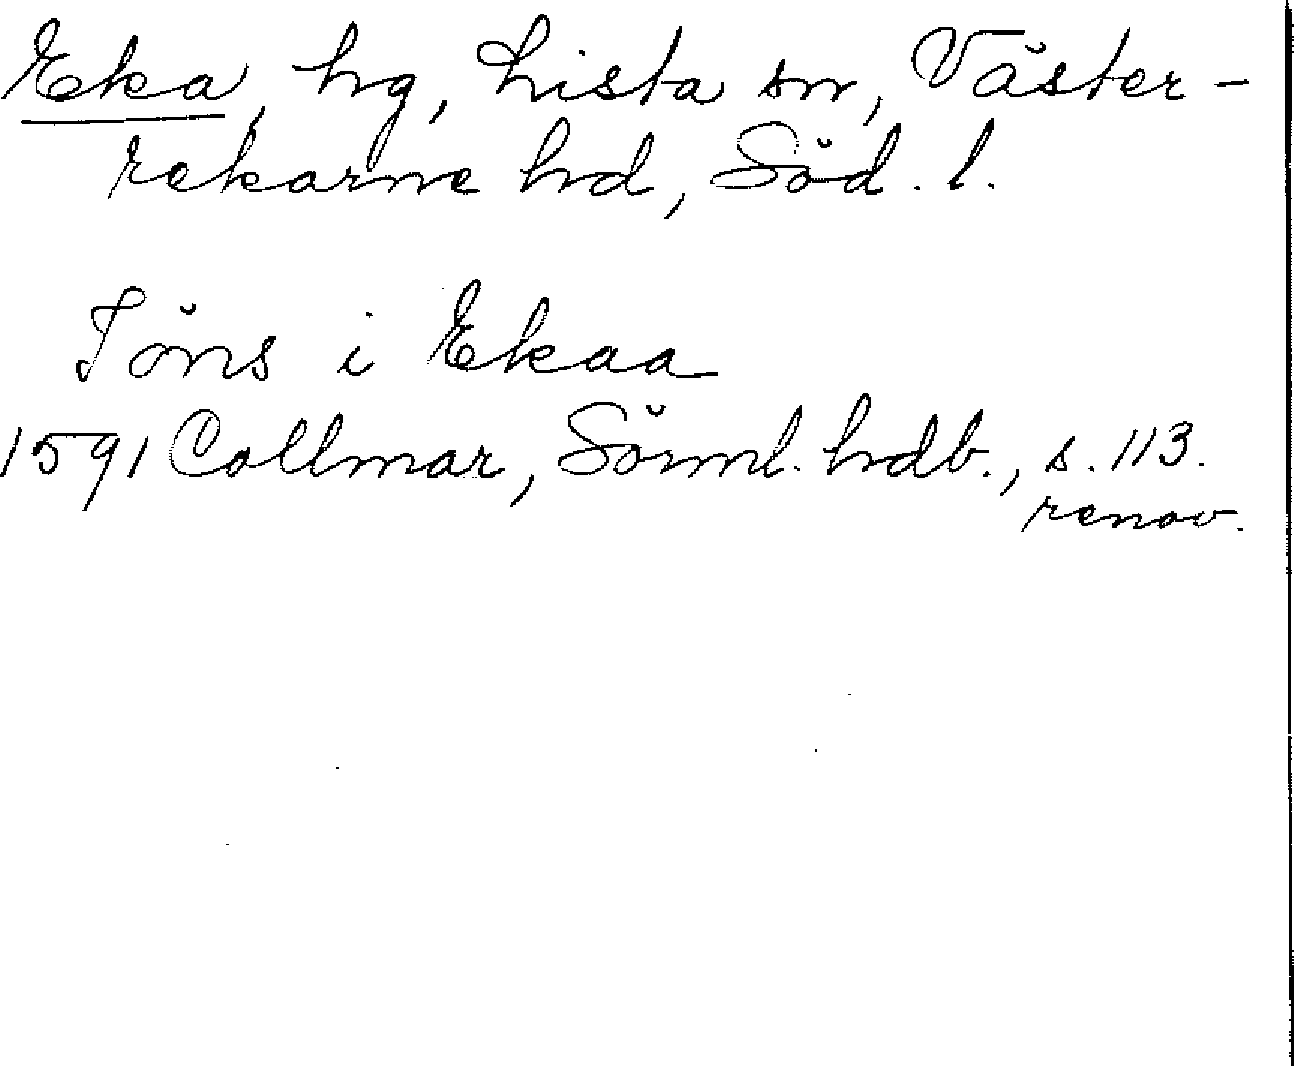 Eka, hg, Lista sn, Väster-
rekarne hd, Söd. l.
Jöns i Ekaa
1591 Collmar, Sörml. hdb., s. 113.
renov.